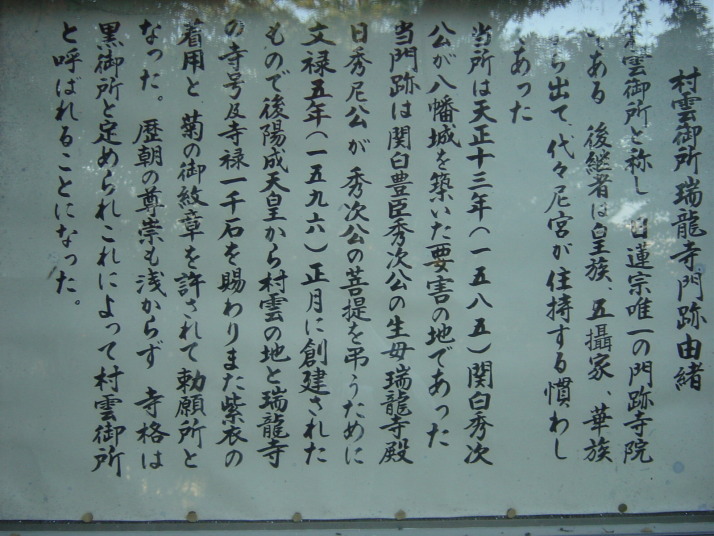 村雲御所瑞龍寺門跡由緒
雲御所と称し 日蓮宗唯一の門跡寺院
ある 後継者は皇族、五攝家、華族
ら出て、代々尼宮が住持する慣わし
あった
当所は天正十三年(一五八五)関白秀次
公が八幡城を築いた要害の地であった
当門跡は関白豊臣秀次公の生母瑞龍寺殿
日秀尼公が秀次公の菩提を弔うために
文禄五年(一五九六)正月に創建された
もので後陽成天皇から村雲の地と瑞龍寺
の寺号及寺禄一千石を賜わりまた紫衣の
着用と 菊の御紋章を許されて勅願所と
なった。歴朝の尊崇も浅からず 寺格は
黒御所と定められこれによって村雲御所
と呼ばれることになった。